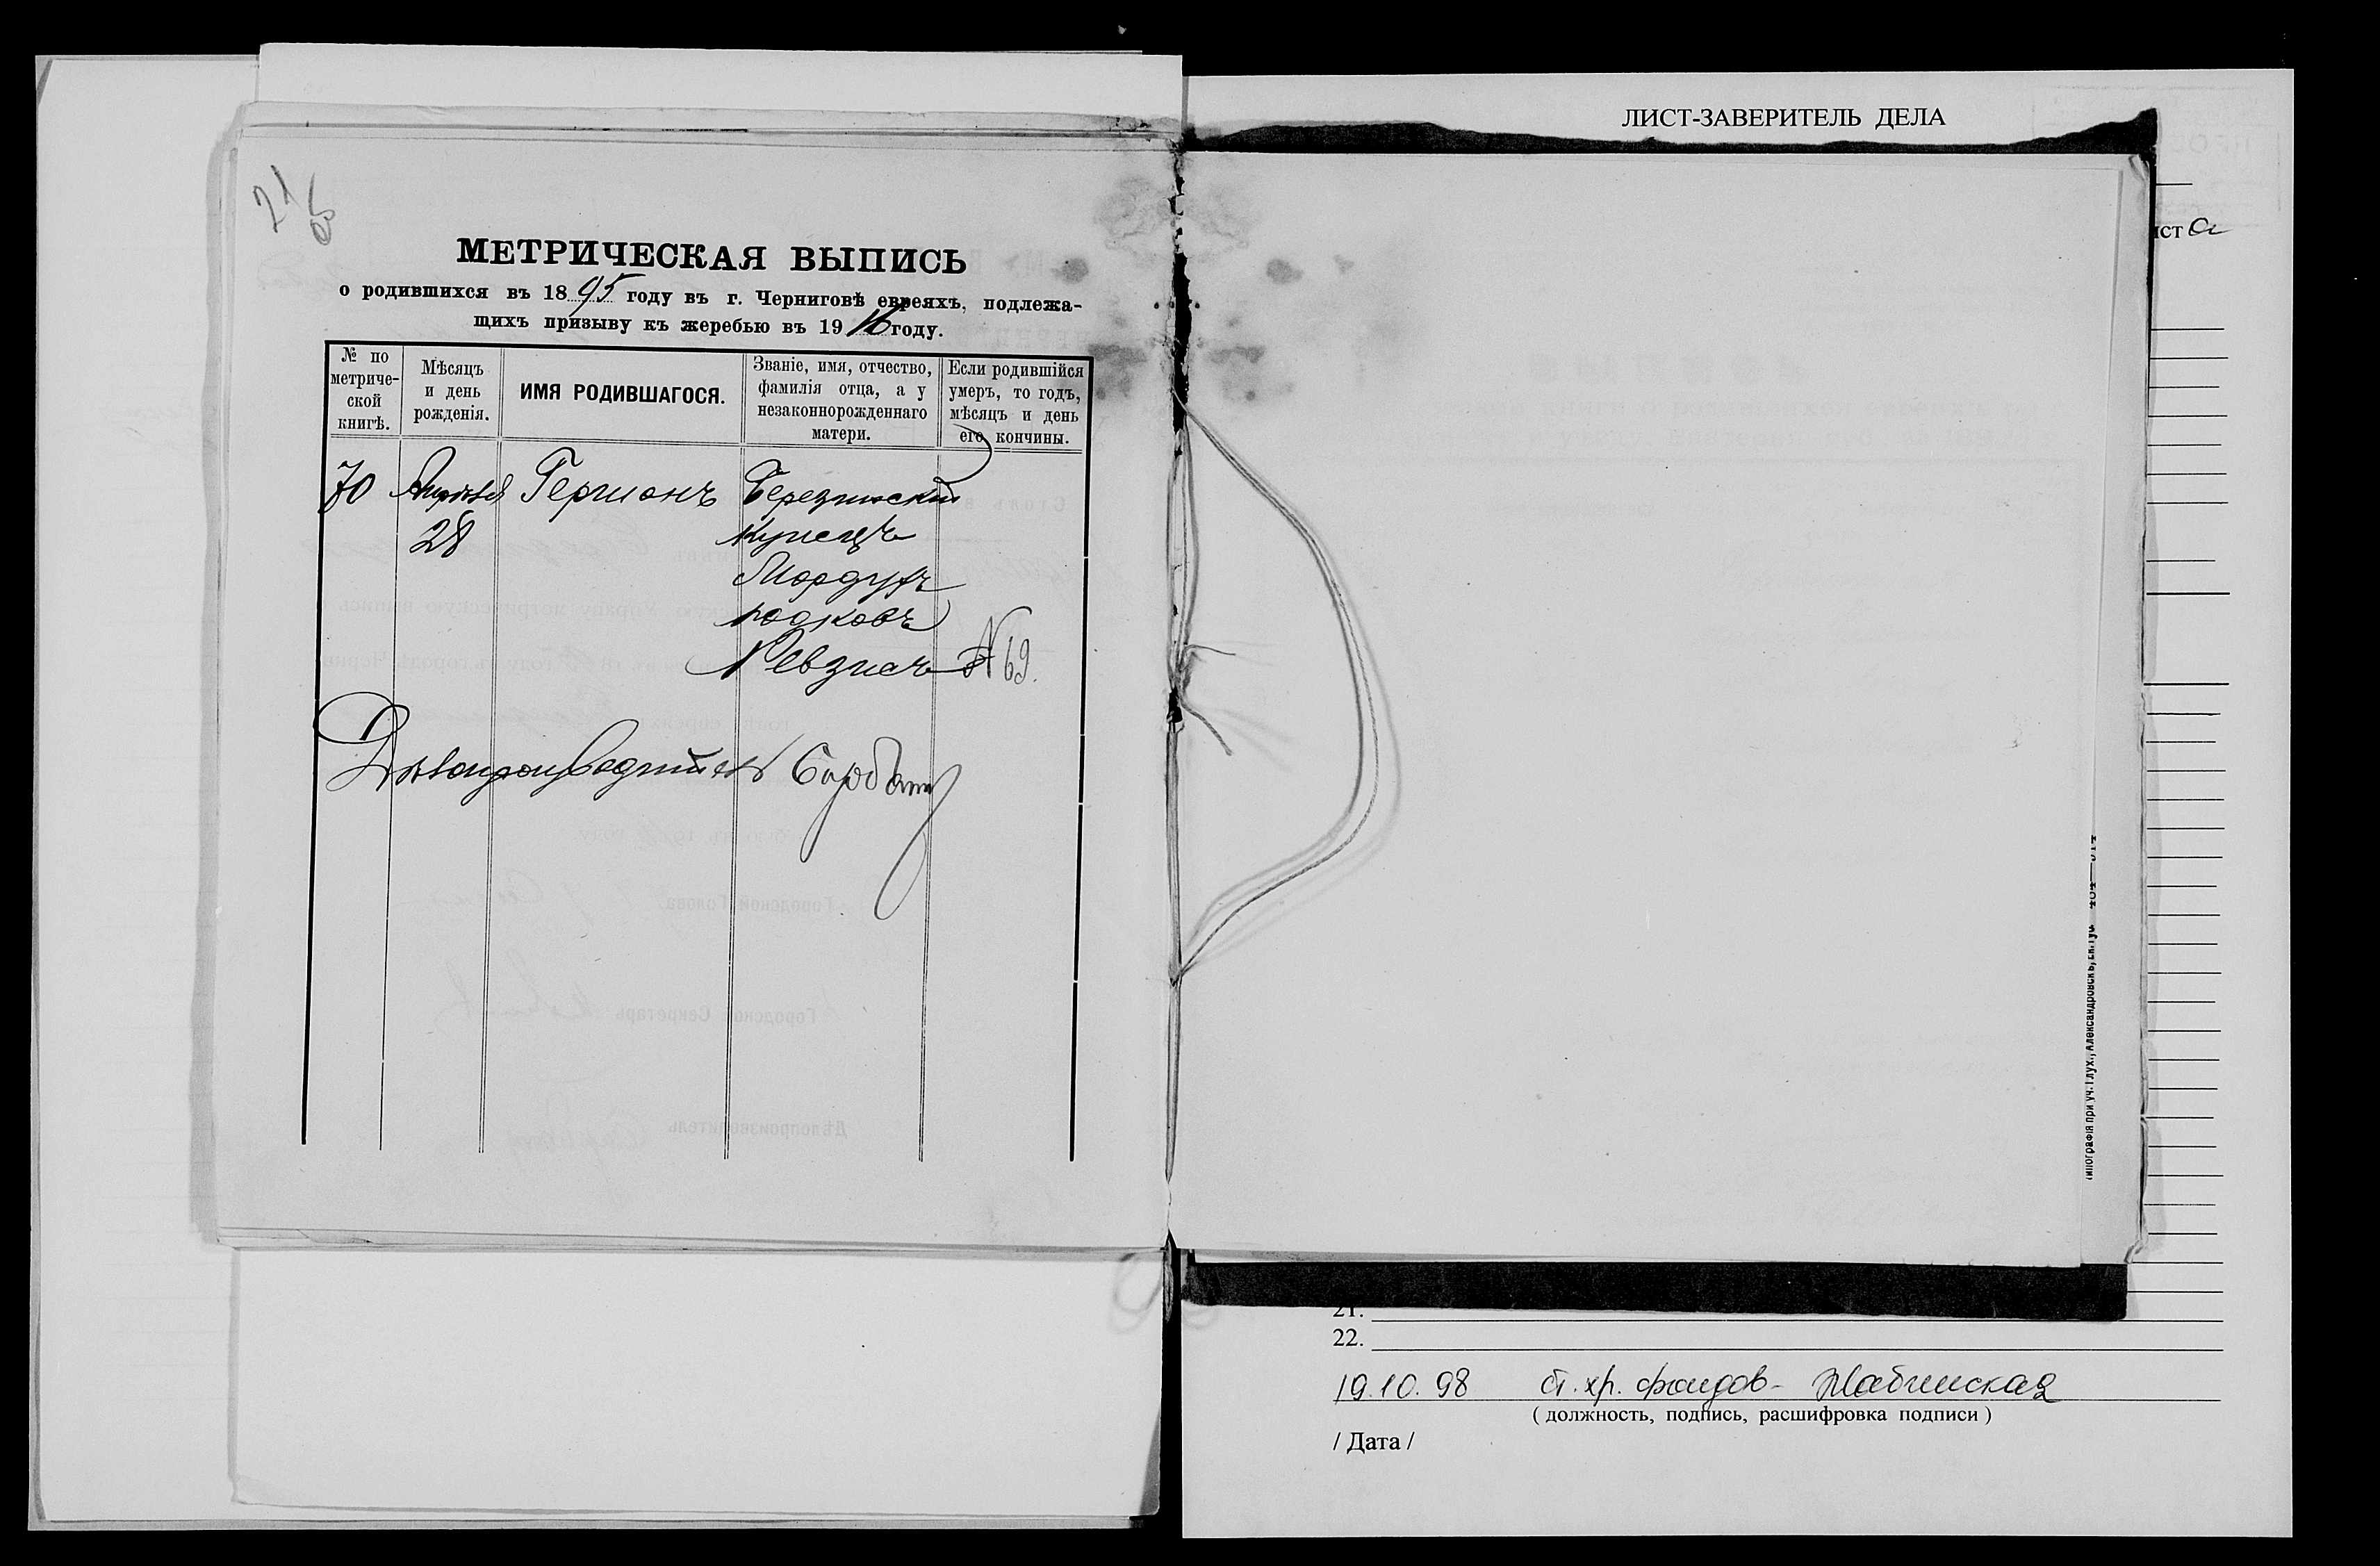 21
об
МЕТРИЧЕСКАЯ ВЫПИСЬ
о родившихся въ 1895 году въ г. Черниговѣ евреяхъ, подлежа-
щихъ призыву къ жеребью въ 1916 году.
№ по метриче-ской книгѣ.
Мѣсяцъ и день рожденія.
ИМЯ РОДИВШАГОСЯ.
Званіе, имя, отчество, фамилія отца, а у незаконнорожденнаго матери.
Если родившійся умеръ, то годъ, мѣсяцъ и день его кончины.
70 Апрѣля Герцонъ Березинскій
28 купецъ
Мордухъ
Ревзинъ № 69.
Дѣлопроизводитель
ЛИСТ-ЗАВЕРИТЕЛЬ ДЕЛА
21.
22.
19.10.98 ст. хр. фондов-
( должность, подпись, расшифровка подписи )
/ Дата /